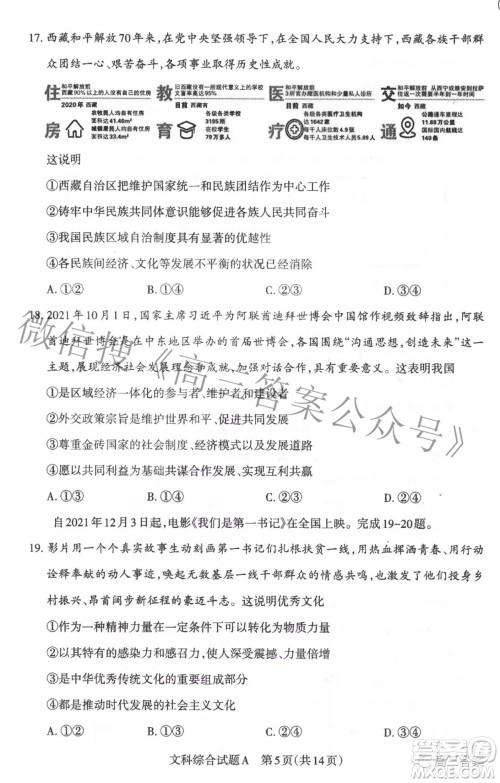 17. 西藏和平解放70年来,在党中央坚强领导下,在全国人民大力支持下,西藏各族干部群
众团结一心、艰苦奋斗,各项事业取得历史性成就。
住房
和平解放前
西藏90%以上的人没有自己的住房
2020年 西藏
农牧民人均自有住房
面积达41.46m²
城镇居民人均自有住房
面积达33.4m²
教育
旧西藏没有一所现代意义上的学校
文盲率高达95%
目前 西藏有
各级各类学校
3195所
在校学生
79万多人
医疗
和平解放前
3所官办藏医机构和少量私人诊所
目前 西藏
各级各类医疗卫生机构
达1642家
每千人床位数4.9张
每千人卫生技术人员5.89人
交通
和平解放前 从西宁或雅安到拉萨
往返一次需要半年到一年时间
如今 西藏
公路通车里程达
11.88万公里
国内国际航线达
140条
这说明
①西藏自治区把维护国家统一和民族团结作为中心工作
②铸牢中华民族共同体意识能够促进共同团结奋斗
③我国民族区域自治制度具有显著的优越性
④各民族间经济、文化等发展不平衡的状况已经消除
A. ①② B. ①④ C. ②③ D. ③④
18. 2021年10月1日,国家主席习近平为阿联酋迪拜世博会中国馆作视频致辞指出,阿联
酋迪拜世博会是在中东地区举办的首届世博会,各国围绕“沟通思想,创造未来”这一
主题,展现经济社会发展理念和成就,对加强对话合作,具有重要意义。这表明我国
①是区域经济一体化的参与者、维护者和建设者
②外交政策宗旨是维护世界和平、促进共同发展
③尊重金砖国家的社会制度、经济模式以及发展道路
④愿以共同利益为基础共谋发展、共享发展成果
A. ①② B. ①③ C. ②④ D. ③④
自2021年12月3日起,电影《我们是第一书记》在全国上映。完成19~20题。
19. 影片用一个个真实故事生动刻画第一书记们扎根扶贫一线,用热血挥洒青春、用行动
诠释奉献的动人事迹,唤起无数基层一线干部群众的情感共鸣,也激发了他们投身乡
村振兴、昂首奋进新征程的豪迈斗志。这说明优秀文化
①作为一种精神力量在一定条件下可以转化为物质力量
②以其特有的感染力和感召力,使人深受震撼、力量倍增
③是中华优秀传统文化的重要组成部分
④都是推动时代发展的社会主义文化
A. ①② B. ①③ C. ②④ D. ③④
文科综合试题A 第5页(共14页)
微信搜《高三答案公众号》